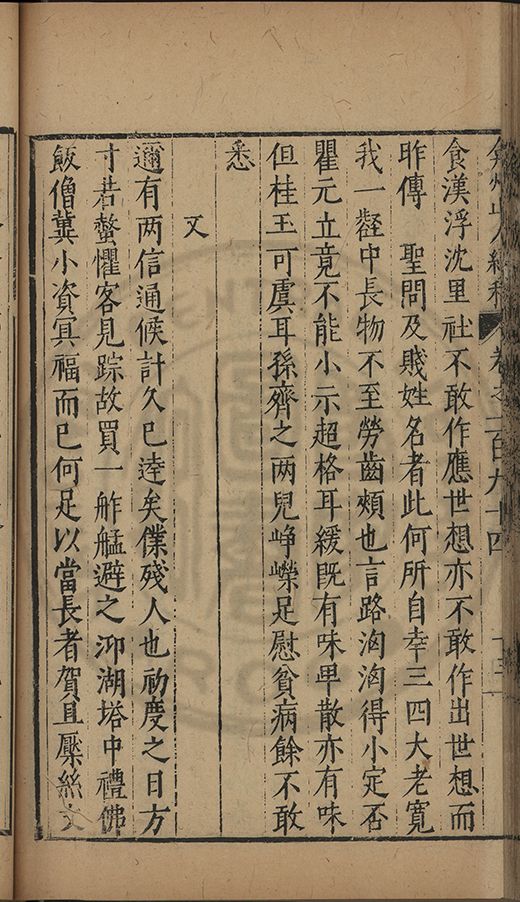 弇州山人續稿 卷之一百九十四 十三
食漢浮沈里社不敢作應世想亦不敢作出世想而
昨傳 聖問及賤姓名者此何所自幸三四大老寬
我一壑中長物不至勞齒頰也言路洶洶得小定否
瞿元立竟不能小示超格耳緩既有味毕散亦有味
但桂玉可虞耳孫齊之两兒崢嶸足慰貧病餘不敢
悉
又
邇有两信通候計久已逹矣僕殘人也初度之日方
寸若螫懼客見踪故買一舴艋避之泖湖塔中禮佛
飯僧兾小資㝠福而已何足以當長者賀且縻絲文